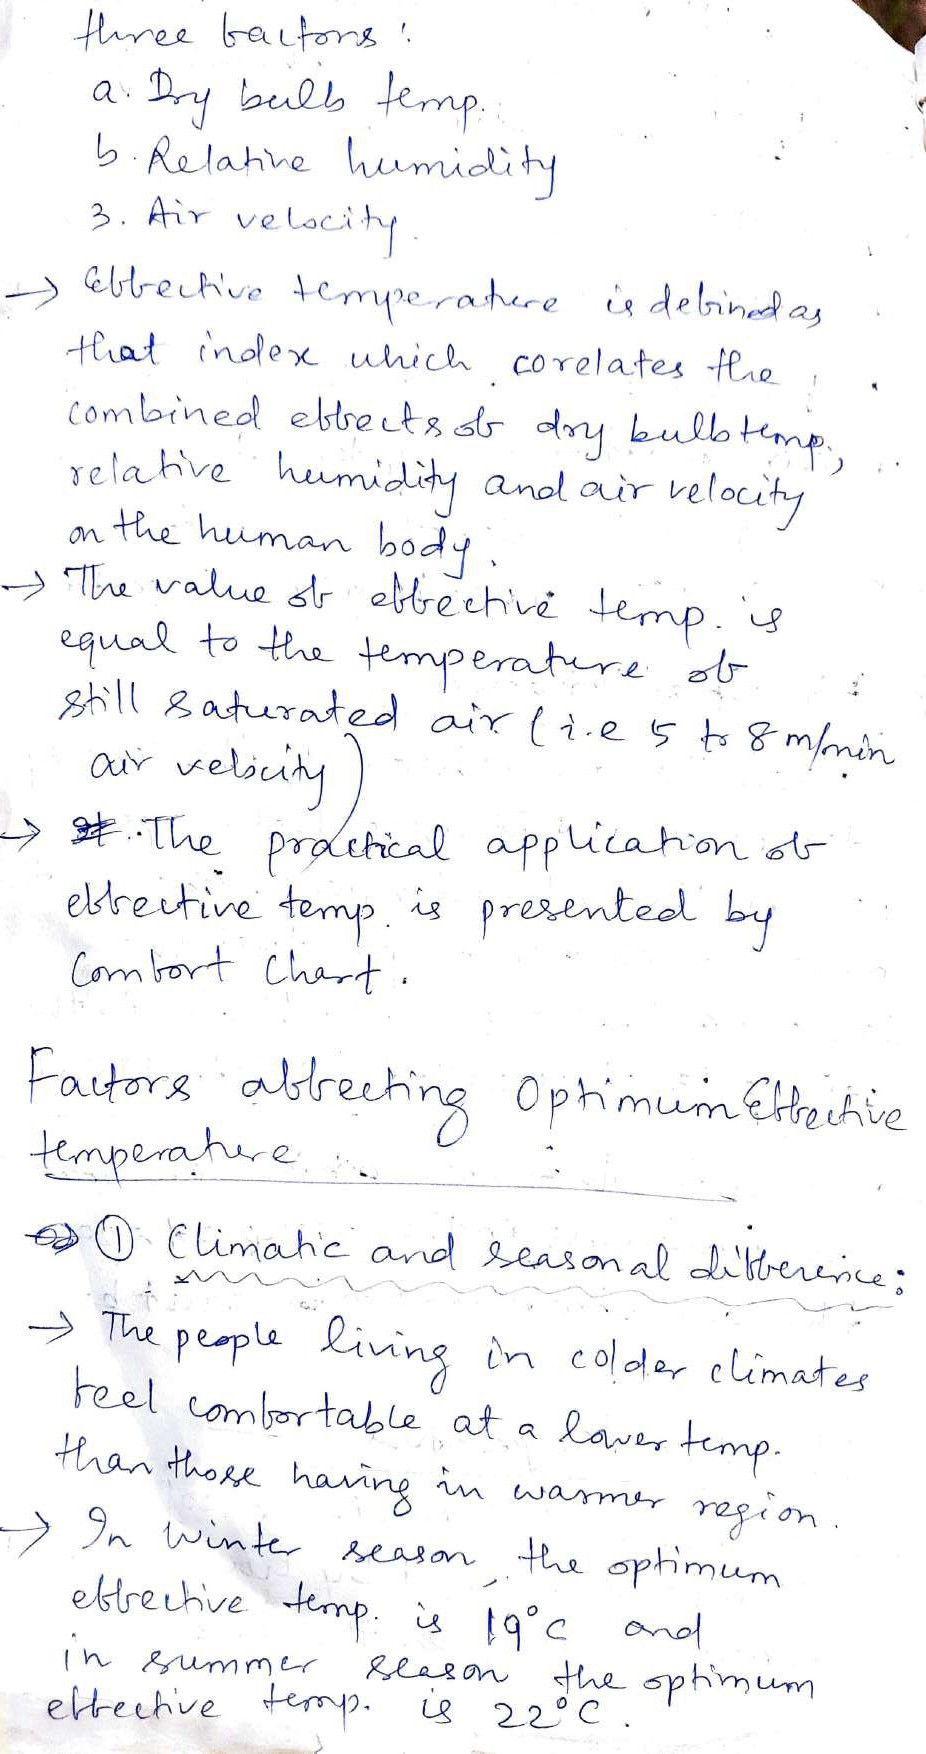 three factors :
a. Dry bulb temp.
b. Relative humidity
3. Air velocity.
→ Effective temperature is defined as
that index which corelates the
combined effects of dry bulb temp.,
relative humidity and air velocity
on the human body.
→ The value of effective temp. is
equal to the temperature of
still saturated air (i.e 5 to 8 m/min
air velocity)
→ The practical application of
effective temp. is presented by
Comfort Chart.
Factors affecting Optimum Effective
temperature
① Climatic and seasonal difference:
→ The people living in colder climates
feel comfortable at a lower temp.
than those having in warmer region.
→ In Winter season, the optimum
effective temp. is 19°C and
in summer season the optimum
effective temp. is 22°C.